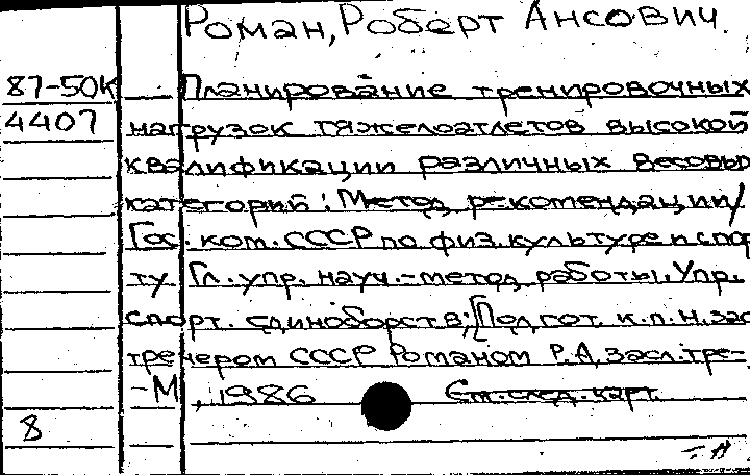 Роман, Роберт Ансович.
87-50К Планирование тренировочных
4407 нагрузок тяжелоатлетов высокой
квалификации различных весовых
категорий: Метод. рекомендации/
Гос. ком. СССР по физ. культуре и спор
ту. Гл. упр. науч.-метод. работы. Упр.
спорт. единоборств; [Подгот. к.п.н. зас
тренером СССР Романом Р.А. засл. тре-
-М, 1986 См. след. карт.
8